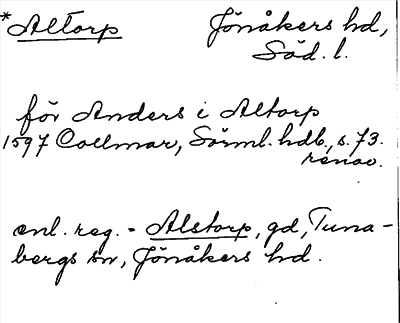 *Altorp Jönåkers hd,
Söd. l.
för Anders i Altorp
1597 Collmar, Sörml. hdb., s. 73.
renov.
enl. reg. = Alstorp, gd, Tuna-
bergs sn, Jönåkers hd.